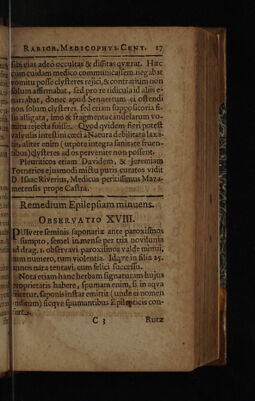 RARIOR. MEDICOPHYS. CENT. 17
sibi vias adeo occultas & dissitas quærat. Hæc
cum cuidam medico communicassem negabat
vomitu posse clysteres rejici, & contrarium non
solum affirmabat, sed pro re ridicula id alim e-
narrabat, donec apud Sennertum ei ostendi
non solum clysteres, sed etiam suppositoria fi-
lis alligata, imo & fragmenta candelarum vo-
mitu rejecta fuisse. Quod quidem fieri potest
valvulis intestini cœci à Natura debitata laxa-
tis, aliter enim (utpote integra sanitate fruen-
tibus) clysteres ad os pervenire non possent.
Pleuriticos etiam Davidem, & Jeremiam
Tornerios ejusmodi mictu puris curatos vidit
D. Isaac Riverius, Medicus peritissimus Maza-
metensis prope Castra.
Remedium Epilepsiam minuens.
OBSERVATIO XVIII.
PUlvere seminis saponariæ ante paroxismos
sumpto, semel in mense per tria novilunia
ad drag. 1. observavi paroxismos valde minui,
tum numero, tum violentia. Idque in filia 25.
annos nata tentavi, cum felici successu.
Nota etiam hanc herbam signaturam hujus
proprietatis habere, spumam enim, si in aqua
fricetur, saponis instar emittit (unde ei nomen
inditum) sicque spumantibus & epilepticis con-
fert.
C 3 Rutæ